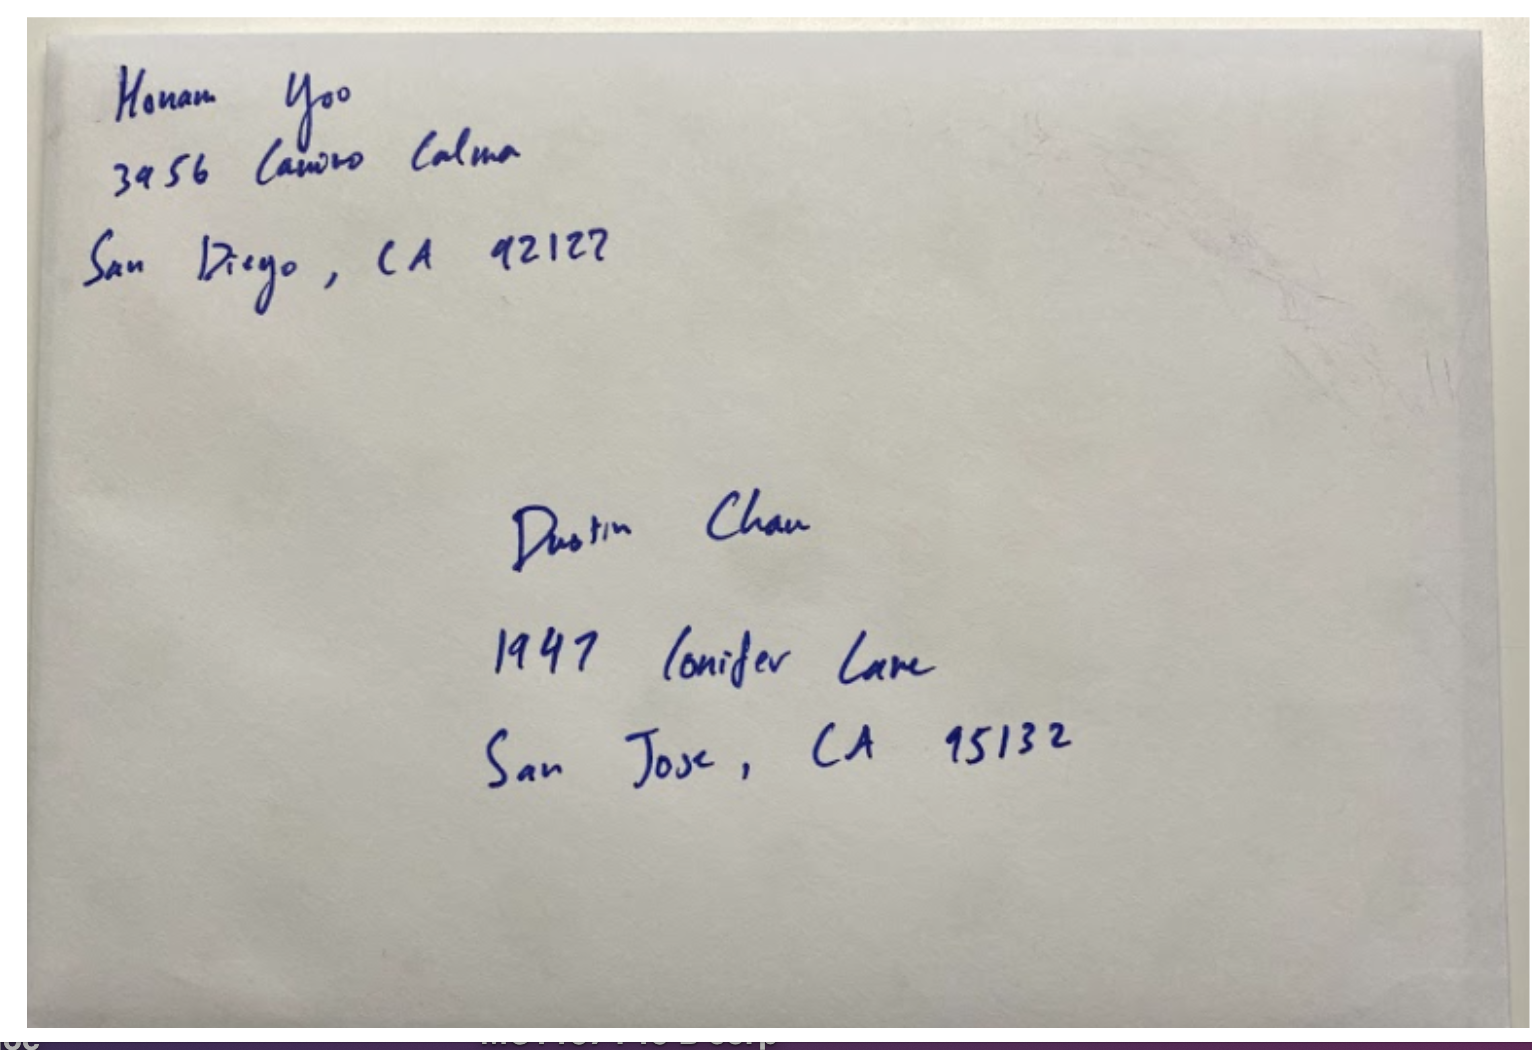 Honam Yoo
3956 Camino Calma
San Diego, CA 92122
Dustin Chau
1947 Conifer Lane
San Jose, CA 95132